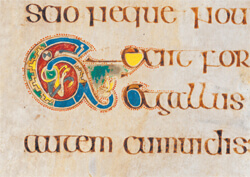 scio neque nou
Et exiit for
et gallus
autem cum uidis